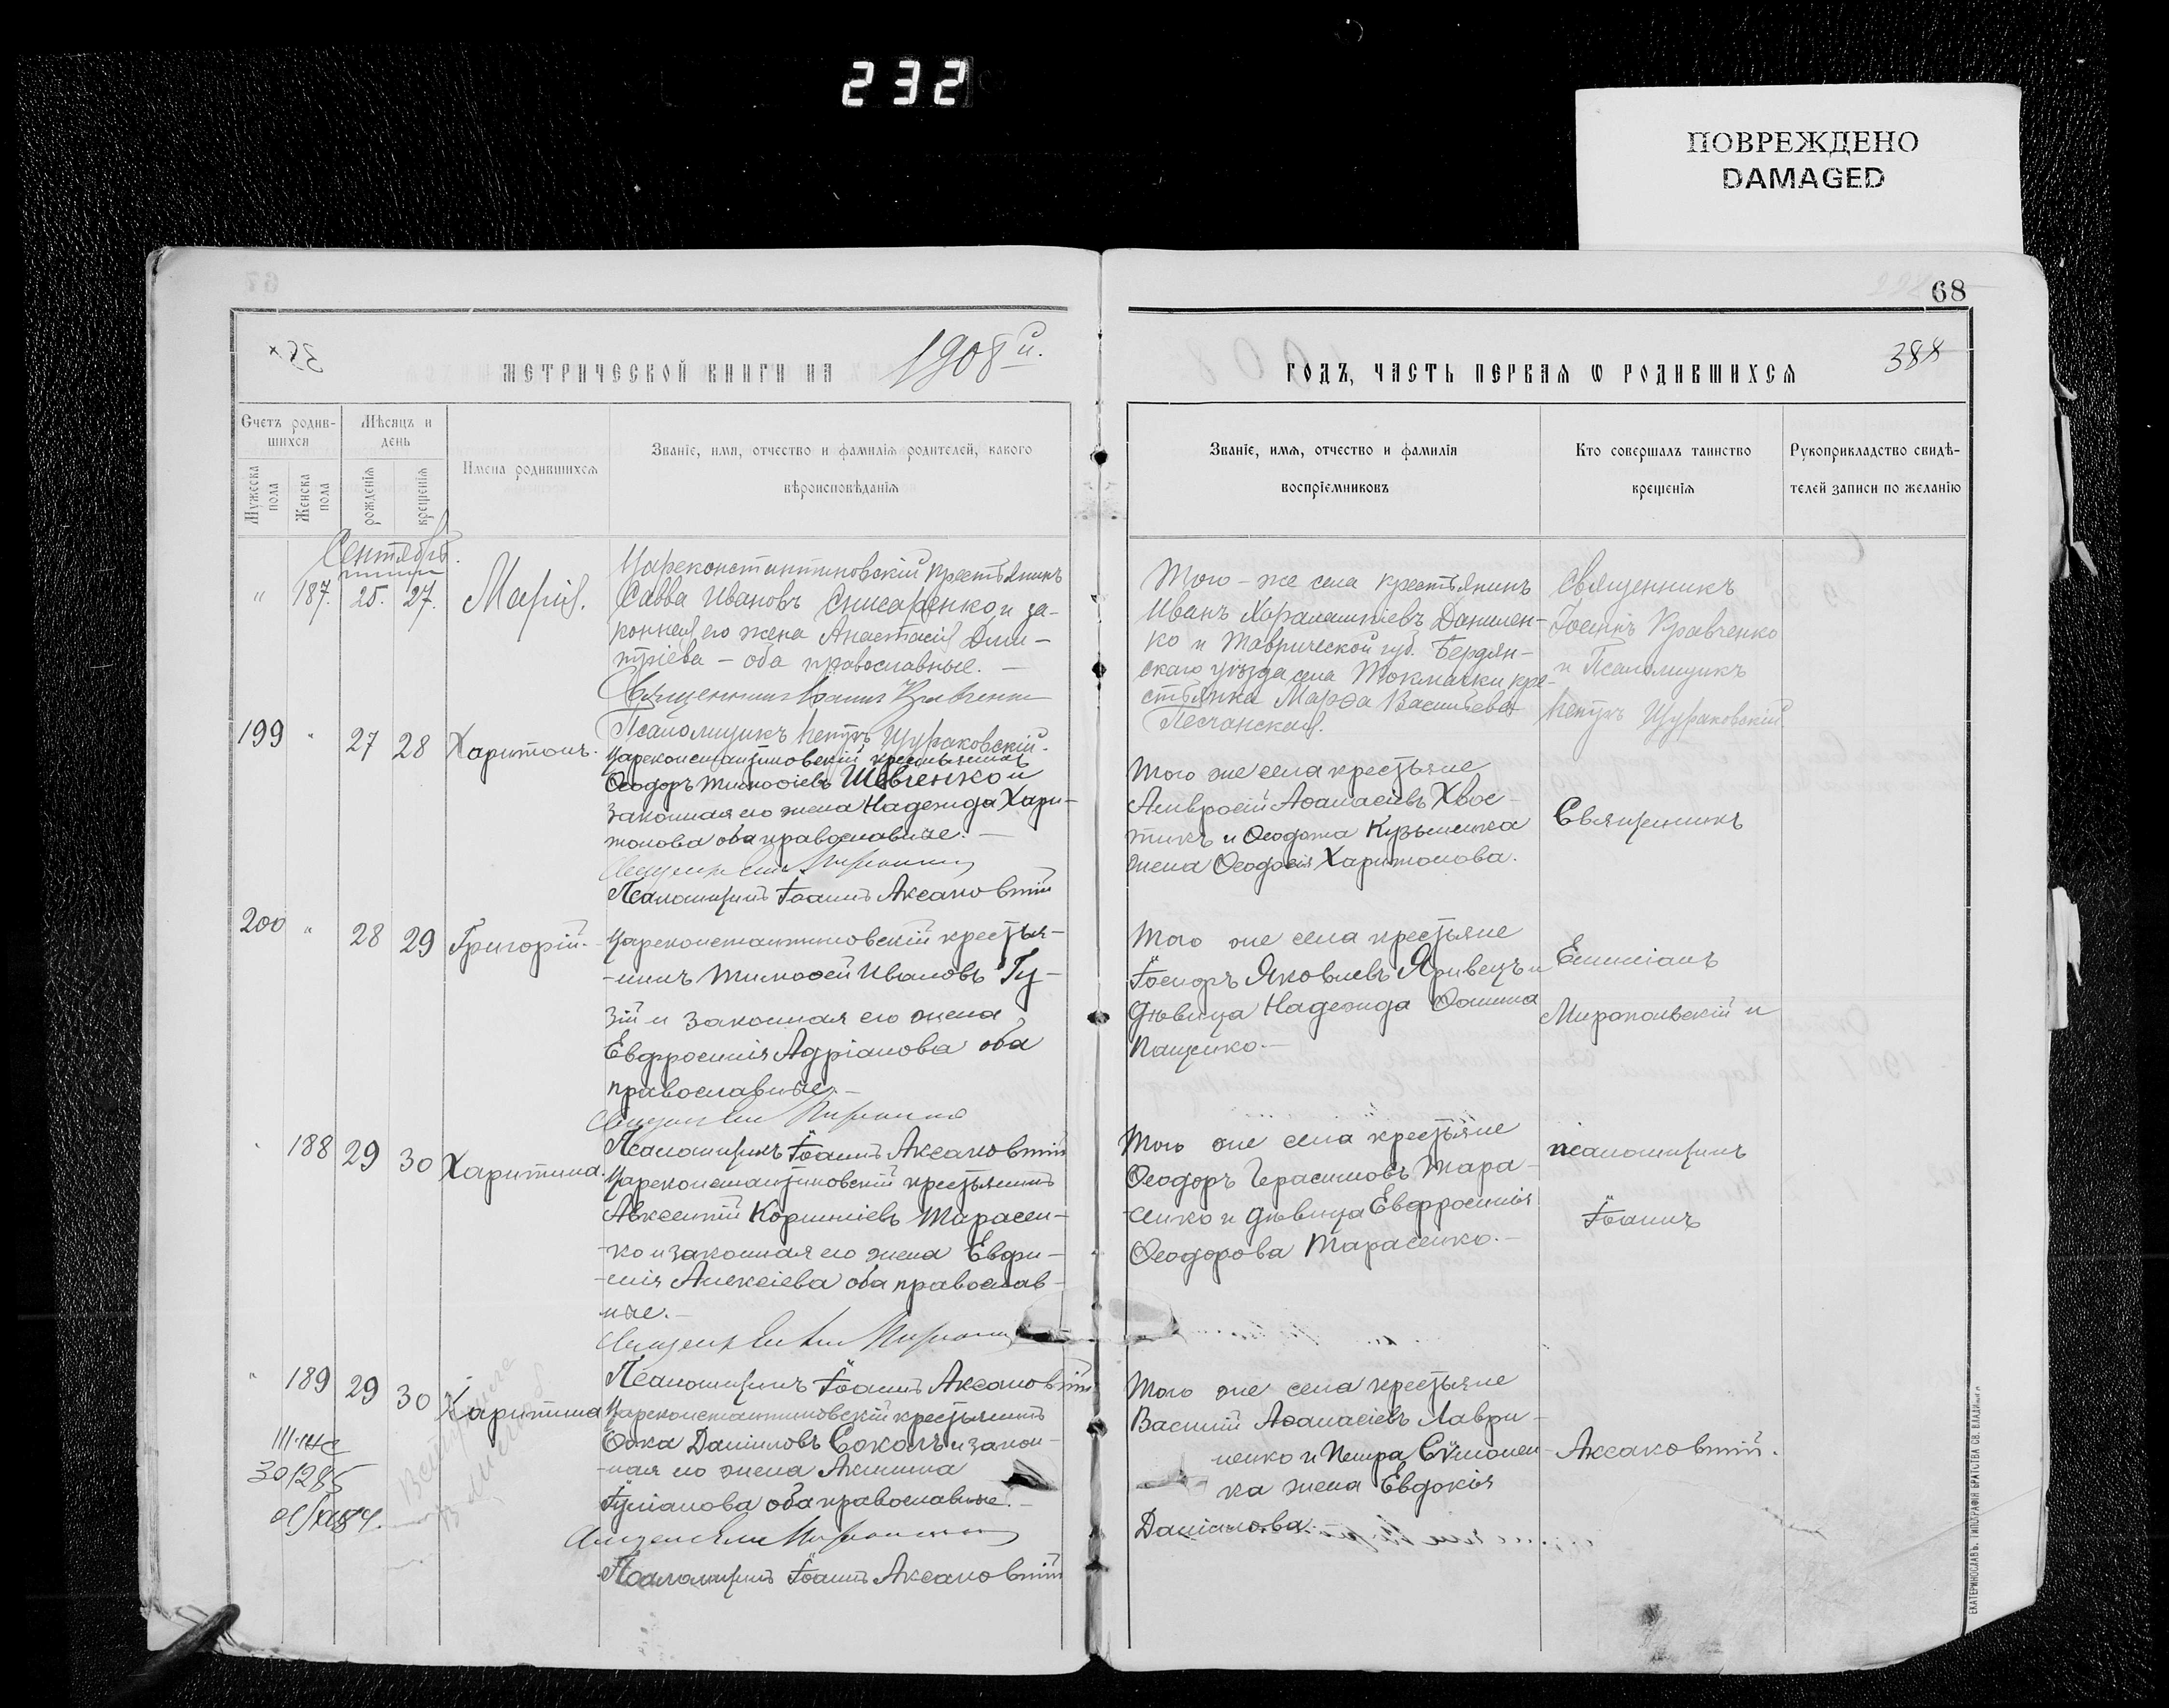 232
ПОВРЕЖДЕНО
DAMAGED
68
МЕТРИЧЕСКОЙ КНИГИ НА 1908 й.
ГОДЪ, ЧАСТЬ ПЕРВАЯ Ѡ РОДИВШИХСЯ
388
Счетъ родив-
шихся
Мужеска
пола
Женска
пола
Мѣсяцъ и
день
рожденія
крещенія
Имена родившихся
Званіе, имя, отчество и фамилія родителей, какого
вѣроисповѣданія
Званіе, имя, отчество и фамилія
воспріемниковъ
Кто совершалъ таинство
крещенія
Рукоприкладство свидѣ-
телей записи по желанію
Сентябрь.
" 187. 25. 27. Марія.
Цареконстантиновскій крестьянинъ
Савва Ивановъ Снисаренко и за-
конная его жена Анастасія Дми-
тріева – оба православные. –
Священникъ Іоаннъ Кравченко
Псаломщикъ Петръ Щураковскій.
Того-же села крестьянинъ
Иванъ Харалампіевъ Данилен-
ко и Таврической губ. Бердян-
скаго уѣзда села Токмачки кре-
стьянка Марѳа Васильева
Песчанская.
Священникъ
Іоаннъ Кравченко
и Псаломщикъ
Петръ Щураковскій
199 " 27 28 Харитонъ.
Цареконстантиновскій крестьянинъ
Ѳеодоръ Тимоѳіевъ Шевченко и
законная его жена Надежда Хари-
тонова оба православные. –
Псаломщикъ Іоаннъ Аксаковтій
Того же села крестьяне
Амвросій Аѳанасіевъ Хвос-
тикъ и Ѳеодота Кузьменка
жена Ѳеодосія Харитонова.
Священникъ
200 " 28 29 Григорій.
Цареконстантиновскій крестья-
-нинъ Тимоѳей Ивановъ Гу-
зій и законная его жена
Евфросинія Адріанова оба
православные. –
Псаломщикъ Іоаннъ Аксаковтій
Того же села крестьяне
Іосифъ Яковлевъ Яривецъ и
дѣвица Надежда Ѳомина
Пащенко. –
Емиліанъ
Миропольскій и
" 188 29 30 Харитина.
Цареконстантиновскій крестьянинъ
Авксентій Корниліевъ Тарасен-
-ко и законная его жена Евфи-
-мія Алексіева оба православ-
ные. –
Псаломщикъ Іоаннъ Аксаковтій
Того же села крестьяне
Ѳеодоръ Герасимовъ Тара-
сенко и дѣвица Евфросинія
Ѳеодорова Тарасенко. –
псаломщикъ
Іоаннъ
" 189 29 30 Харитина
Цареконстантиновскій крестьянинъ
Ѳока Даніиловъ Соколъ и закон-
-ная его жена Акилина
Іуліанова оба православные. –
Псаломщикъ Іоаннъ Аксаковтій
Того же села крестьяне
Василій Аѳанасіевъ Лаври-
ненко и Петра Сѵмонен-
ка жена Евдокія
Даніилова.
Аксаковтій.
ЕКАТЕРИНОСЛАВЪ. ТИПОГРАФІЯ БРАТСТВА СВ. ВЛАДИМІРА